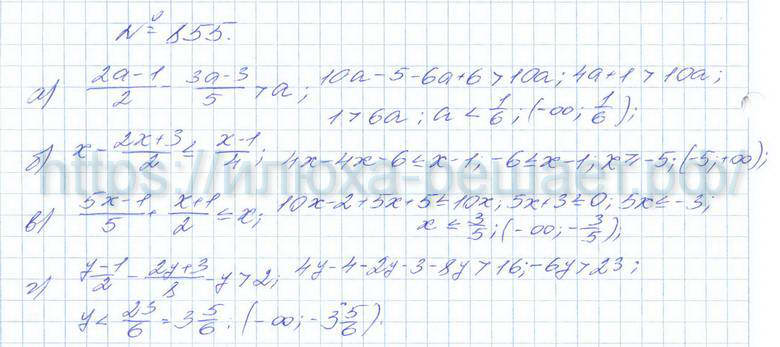 № 855.
а) (2a-1)/2 - (3a-3)/5 > a; 10a-5-6a+6>10a; 4a+1>10a;
1>6a; a<1/6; (-∞; 1/6);
б) x - (2x+3)/2 ≤ (x-1)/4; 4x-4x-6≤x-1, -6≤x-1; x≥-5; (-5;+∞);
в) (5x-1)/5 + (x+1)/2 ≤ x; 10x-2+5x+5≤10x; 5x+3≤0; 5x≤-3;
x ≤ 3/5; (-∞; -3/5);
г) (y-1)/2 - (2y+3)/8 - y>2; 4y-4-2y-3-8y>16; -6y>23;
y< 23/6 = 3 5/6; (-∞; -3 5/6).
https://илюха-решает.рф/